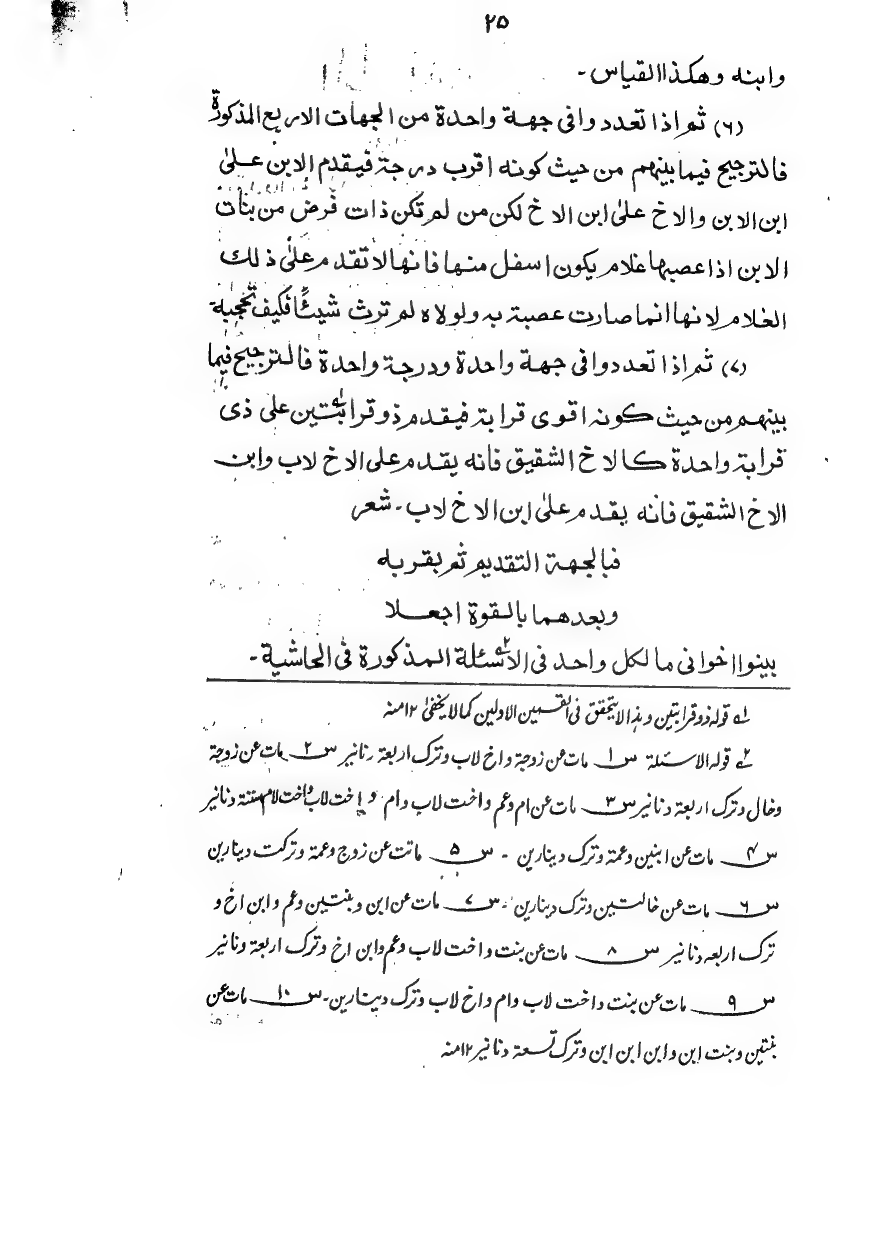 ٢٥
وابنه وهكذا القياس ۔
(٦) ثم اذا تعددوا فى جهة واحدة من الجهات الاربع المذكورة
فالترجيح فيما بينهم من حيث كونه اقرب درجة فيقدم الابن علىٰ
ابن الابن والاخ علىٰ ابن الاخ لكن من لم تكن ذات فرض من بنات
الابن اذا عصبها غلام يكون اسفل منها فانها لا تقدم علىٰ ذلك
الغلام لانها انما صارت عصبة به ولولاه لم ترث شيئًا فكيف تحجبه۔
(٧) ثم اذا تعددوا فى جهة واحدة ودرجة واحدة فالترجيح فيما
بينهم من حيث كونه اقوى قرابة فيقدم ذو قرابتين١ على ذى
قرابة واحدة كالاخ الشقيق فانه يقدم على الاخ لاب وابن
الاخ الشقيق فانه يقدم علىٰ ابن الاخ لاب ۔ شعر
فبالجهة التقديم ثم بقربه
وبعدهما بالقوة اجعلا
بينوا اخوانى ما لكل واحد فى الاسئلة٢ المذكورة فى الحاشية ۔
١ قوله ذو قرابتين وهذا لا يتحقق فى القسمين الاولين كما لا يخفىٰ ١٢ منه
٢ قوله الاسئلة س١ مات عن زوجة واخ لاب وترك اربعة دنانير س٢ مات عن زوجة
وخال وترك اربعة دنانير س٣ مات عن ام وعم واخت لاب وام واخت لاب واخت لام ستة دنانير
س۴ مات عن ابنين وعمة وترك دينارين ۔ س۵ ماتت عن زوج وعمة وتركت دينارين
س٦ مات عن خالتين وترك دينارين ۔ س٧ مات عن ابن وبنتين وعم وابن اخ و
ترك اربعه دنانير س٨ مات عن بنت واخت لاب وعم وابن اخ وترك اربعة دنانير
س٩ مات عن بنت واخت لاب وام واخ لاب وترك دينارين ۔ س١٠ مات عن
بنتين وبنت ابن وابن ابن ابن وترك تسعة دنانير ١٢ منه